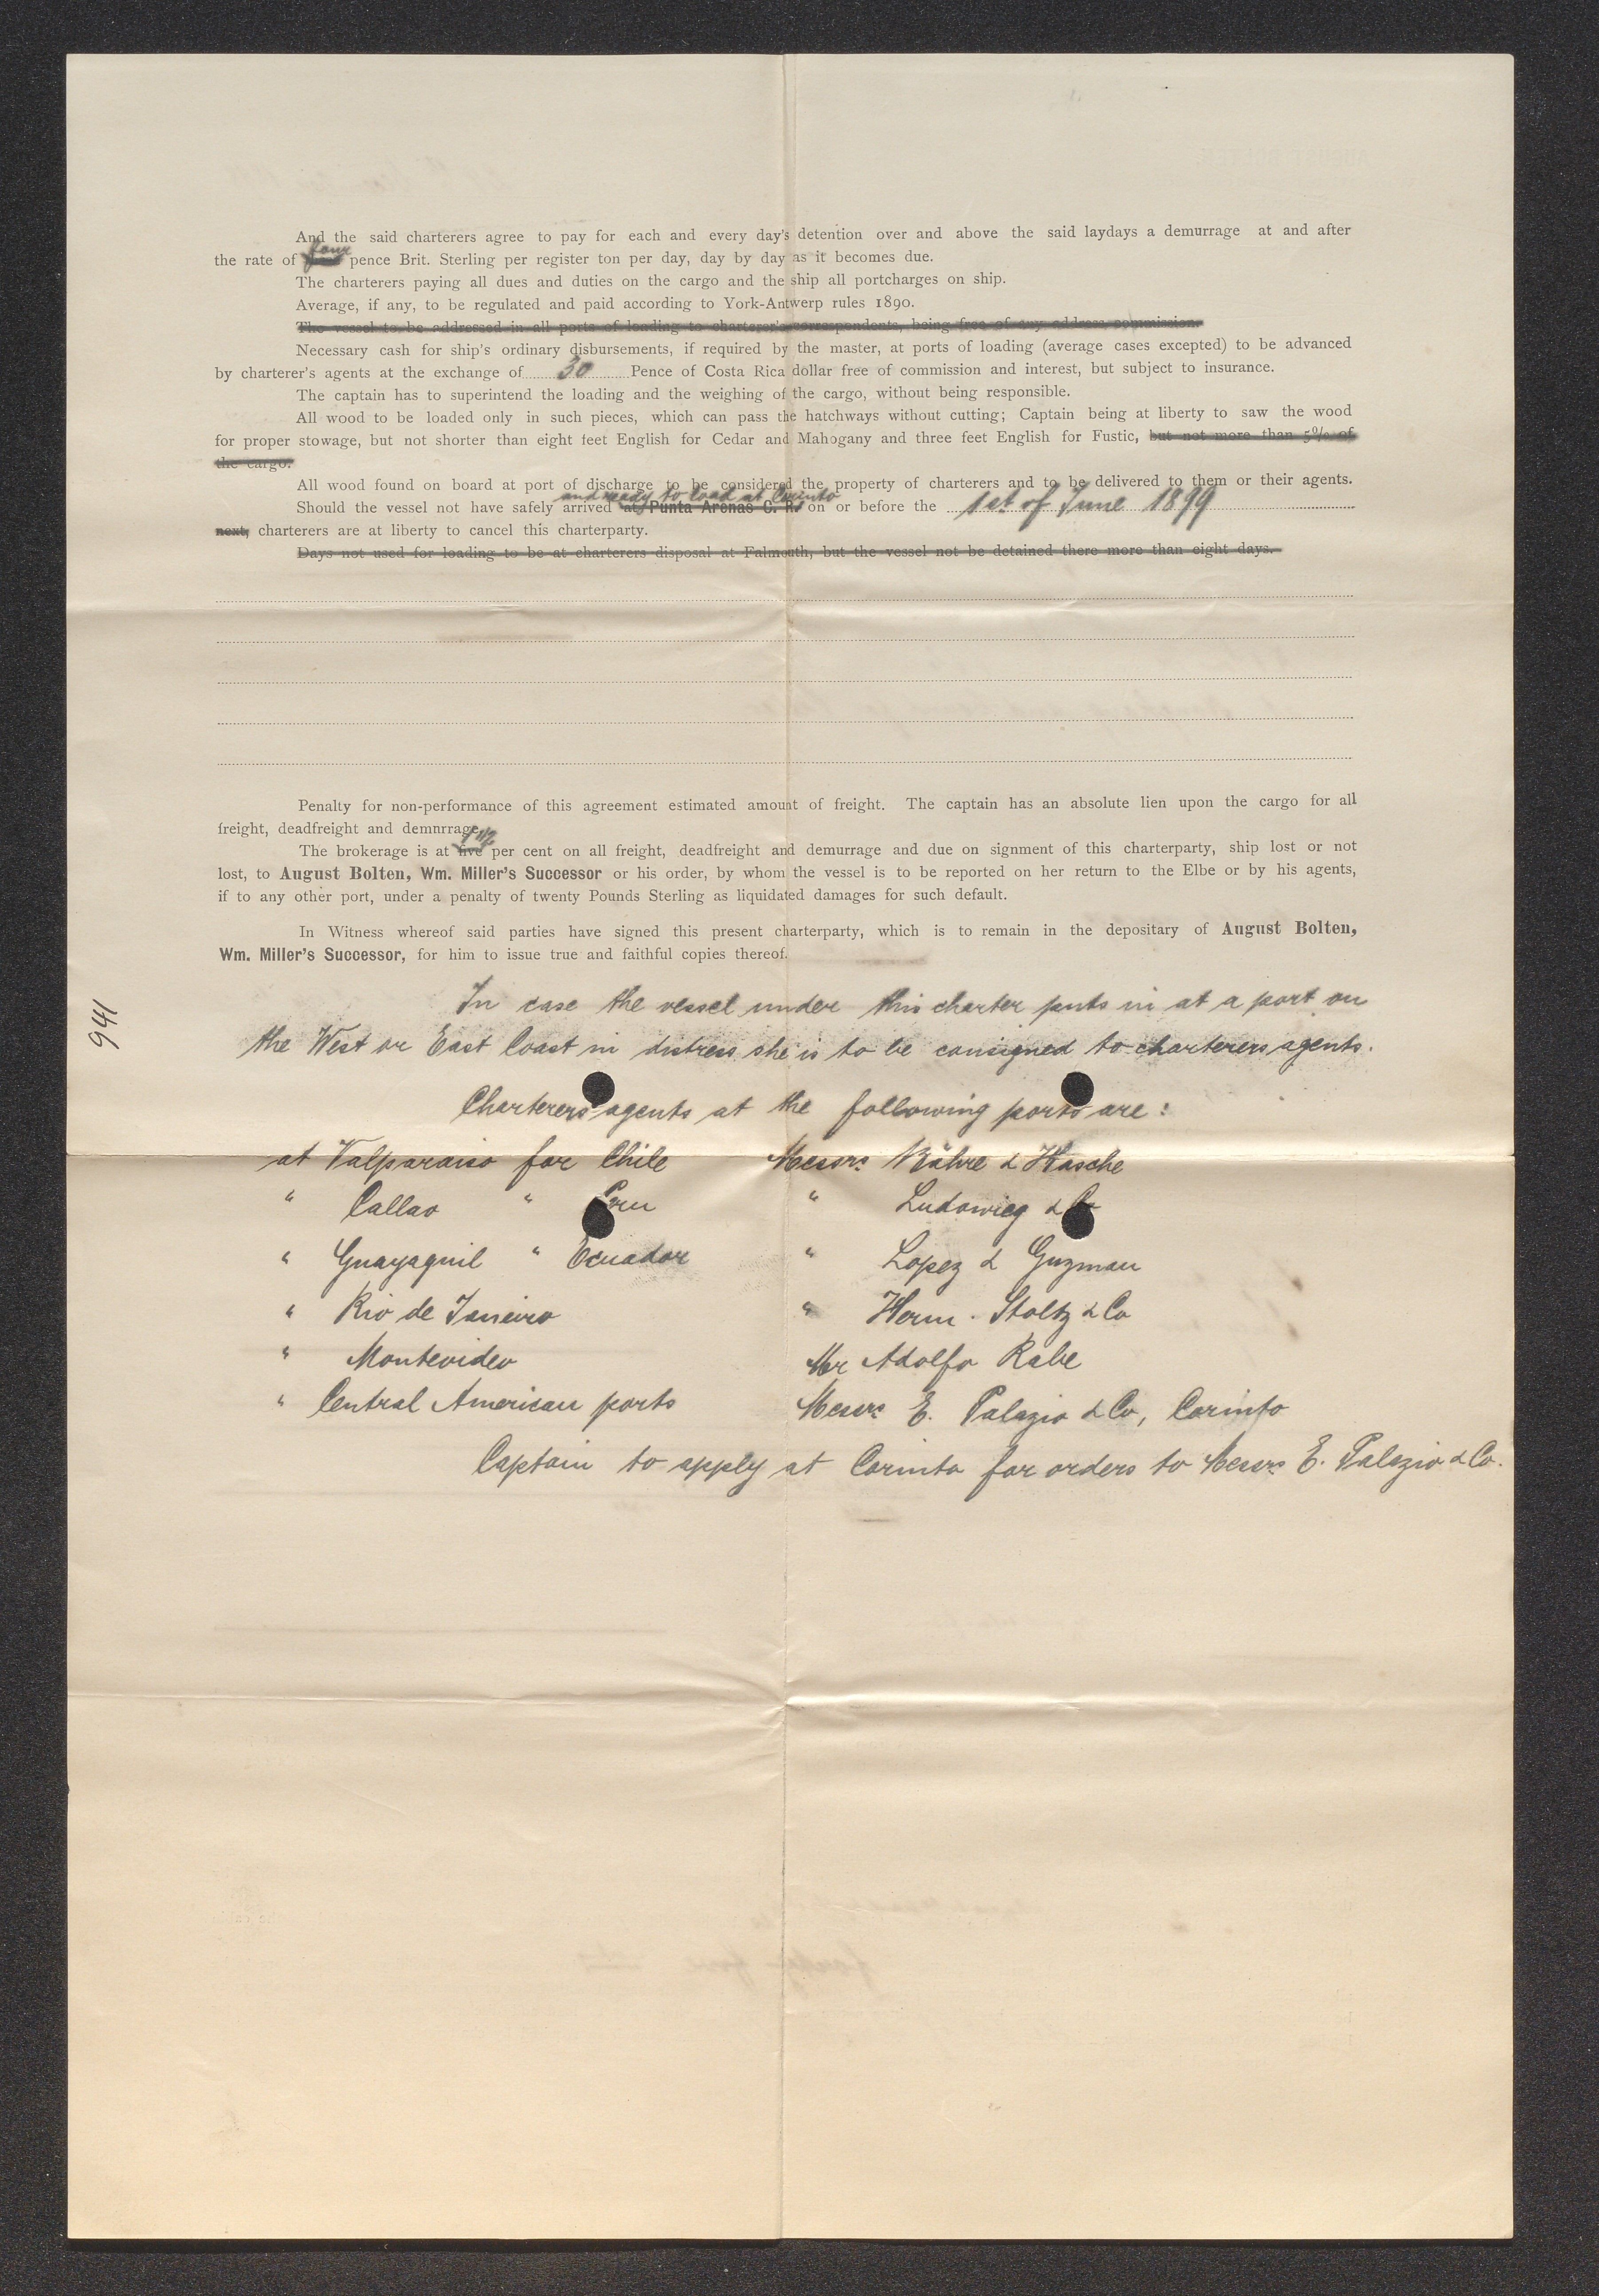 And the said charterers agree to pay for each and every day's detention over and above the said laydays a demurrage at and after
the rate of four pence Brit. Sterling per register ton per day, day by day as it becomes due.
The charterers paying all dues and duties on the cargo and the ship all portcharges on ship.
Average, if any, to be regulated and paid according to York-Antwerp rules 1890.
The vessel to be addressed in all ports of loading to charterer's correspondents, being free of any address commission.
Necessary cash for ship's ordinary disbursements, if required by the master, at ports of loading (average cases excepted) to be advanced
by charterer's agents at the exchange of 30 Pence of Costa Rica dollar free of commission and interest, but subject to insurance.
The captain has to superintend the loading and the weighing of the cargo, without being responsible.
All wood to be loaded only in such pieces, which can pass the hatchways without cutting; Captain being at liberty to saw the wood
for proper stowage, but not shorter than eight feet English for Cedar and Mahogany and three feet English for Fustic, but not more than 5% of
the cargo.
All wood found on board at port of discharge to be considered the property of charterers and to be delivered to them or their agents.
and ready to load at Corinto
Should the vessel not have safely arrived at Punta Arenas C. R. on or before the 1st of June 1899
next, charterers are at liberty to cancel this charterparty.
Days not used for loading to be at charterers disposal at Falmouth, but the vessel not be detained there more than eight days.
Penalty for non-performance of this agreement estimated amount of freight. The captain has an absolute lien upon the cargo for all
freight, deadfreight and demnrrage.
The brokerage is at five per cent on all freight, deadfreight and demurrage and due on signment of this charterparty, ship lost or not
lost, to August Bolten, Wm. Miller's Successor or his order, by whom the vessel is to be reported on her return to the Elbe or by his agents,
if to any other port, under a penalty of twenty Pounds Sterling as liquidated damages for such default.
In Witness whereof said parties have signed this present charterparty, which is to remain in the depositary of August Bolten,
Wm. Miller's Successor, for him to issue true and faithful copies thereof.
In case the vessel under this charter puts in at a port on
the West or East Coast in distress she is to be consigned to charterers agents.
941
Charterers agents at the following ports are:
at Valparaiso for Chile Messrs Bähre & Hasche
" Callao " Peru " Ludowieg & Co
" Guayaquil " Ecuador " Lopez & Guzman
" Rio de Janeiro " Herm. Stoltz & Co
" Montevideo Mr Adolfo Rabe
" Central American ports Messrs E. Palazio & Co, Corinto
Captain to apply at Corinto for orders to Messrs E. Palazio & Co.